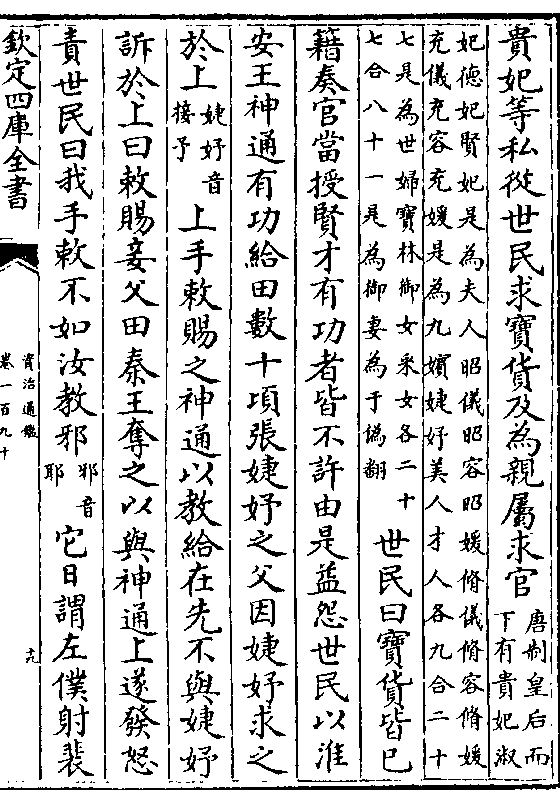 貴妃等私從世民求寶貨及為親屬求官唐制皇后而下有貴妃淑
妃德妃賢妃是為夫人昭儀昭容昭媛脩儀脩容脩媛
充儀充容充媛是為九嬪婕妤美人才人各九合二十
七是為世婦寶林御女采女各二十七合八十一是為御妻為于偽翻世民曰寶貨皆已
籍奏官當授賢才有功者皆不許由是益怨世民以淮
安王神通有功給田數十項張婕妤之父因婕妤求之
於上婕妤音接予上手敕賜之神通以教給在先不與婕妤
訴於上曰敕賜妾父田秦王奪之以與神通上遂發怒
責世民曰我手敕不如汝教邪邪音耶它日謂左僕射裴
欽定四庫全書
資治通鑑
卷一百九十
十九